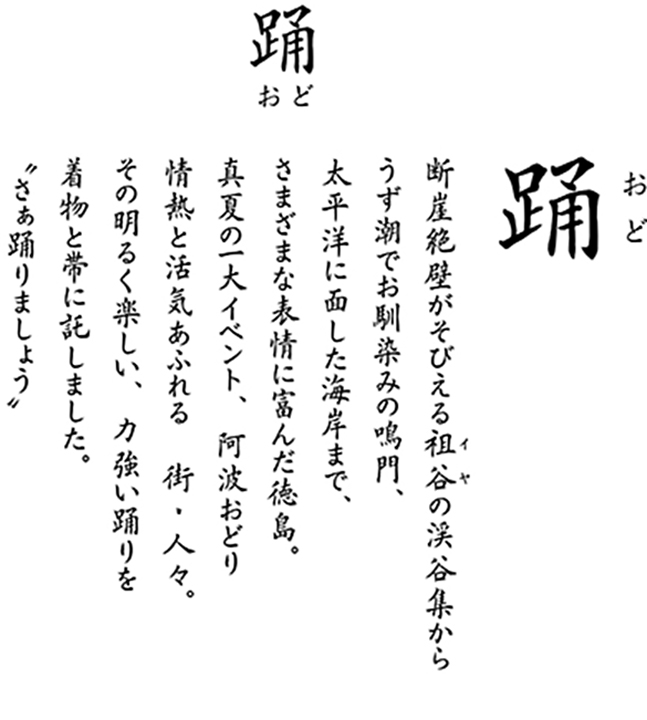 踊
おど
踊
おど
断崖絶壁がそびえる祖谷の渓谷集から
イヤ
うず潮でお馴染みの鳴門、
太平洋に面した海岸まで、
さまざまな表情に富んだ徳島。
真夏の一大イベント、阿波おどり
情熱と活気あふれる 街・人々。
その明るく楽しい、力強い踊りを
着物と帯に託しました。
〝さぁ踊りましょう〟